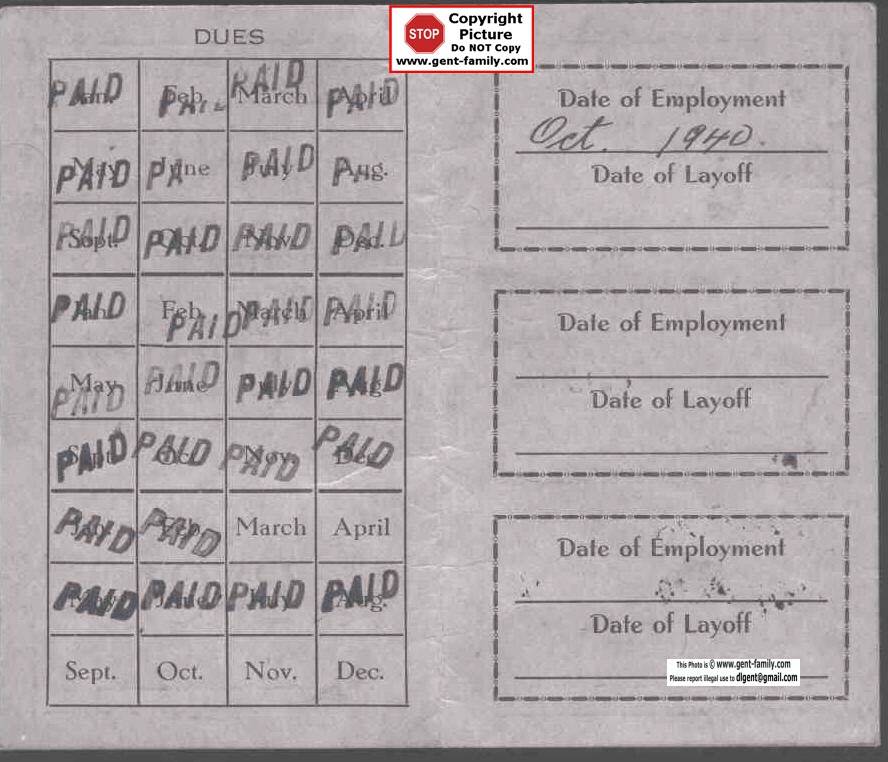 Copyright
STOP Picture
Do NOT Copy
www.gent-family.com
DUES
Jan. PAID Feb. PAID March PAID April PAID
May PAID June PA July PAID Aug. PAID
Sept. PAID Oct. PAID Nov. PAID Dec. PAID
Jan. PAID Feb. PAID March PAID April PAID
May PAID June PAID July PAID Aug. PAID
Sept. PAID Oct. PAID Nov. PAID Dec. PAID
Jan. PAID Feb. PAID March April
May PAID June PAID July PAID Aug. PAID
Sept. Oct. Nov. Dec.
Date of Employment
Oct. 1940.
Date of Layoff
Date of Employment
Date of Layoff
Date of Employment
Date of Layoff
This Photo is © www.gent-family.com
Please report illegal use to dlgent@gmail.com